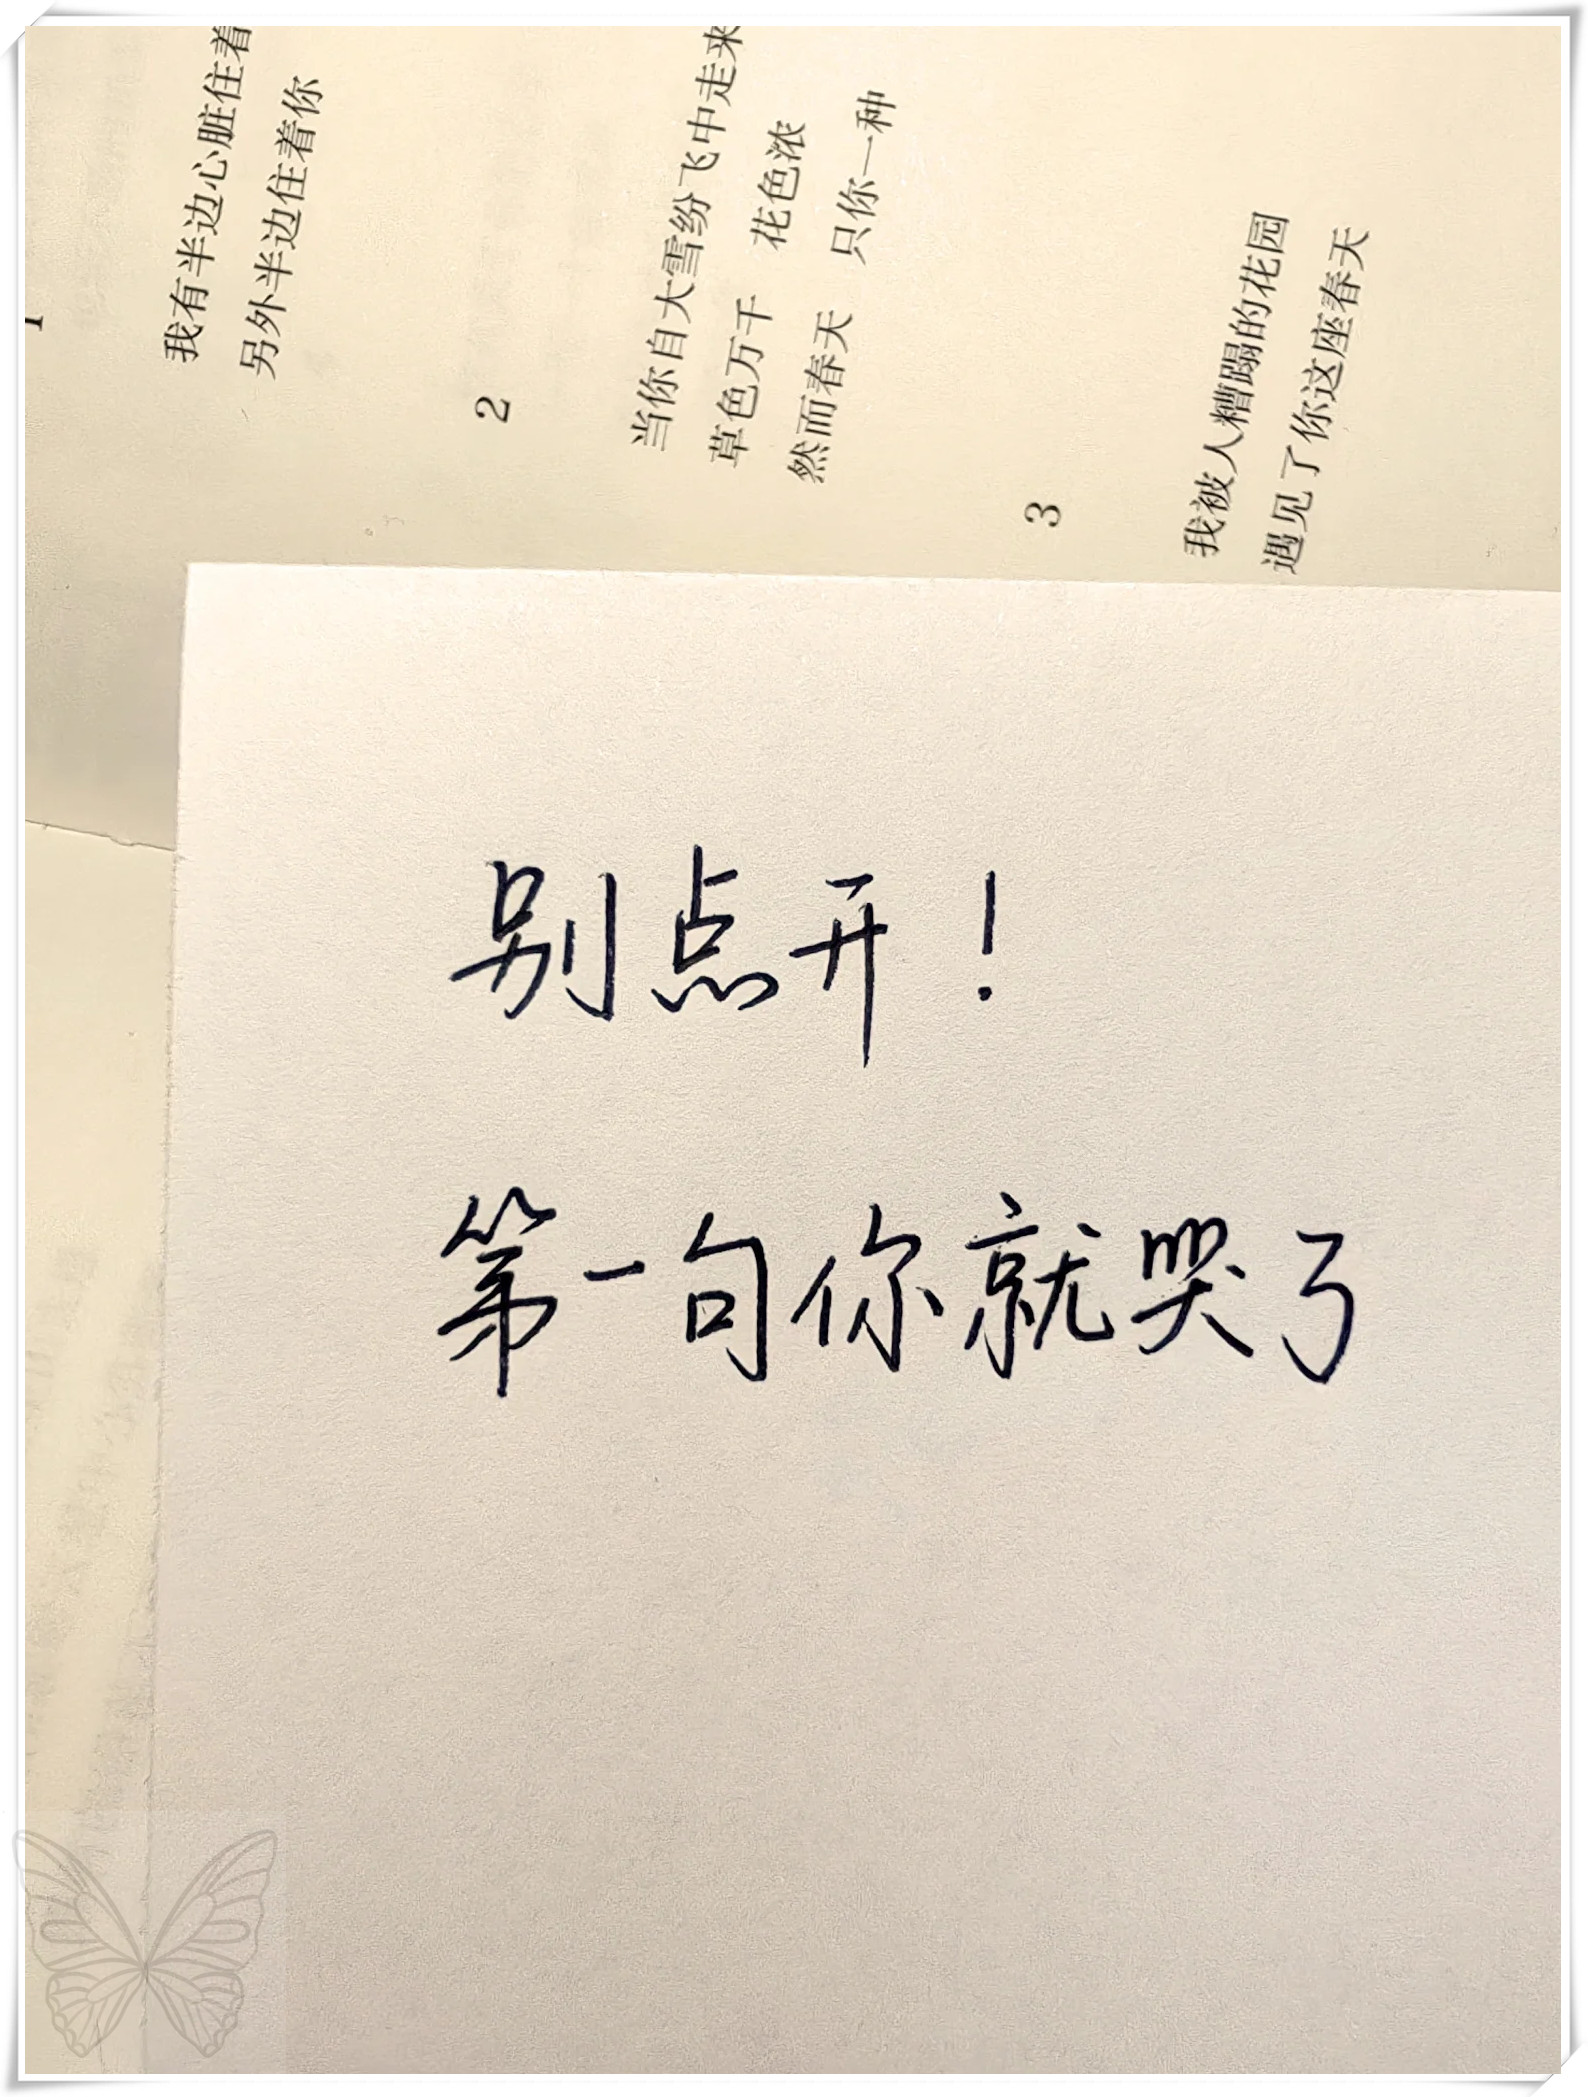 1
我有半边心脏住着
另外半边住着你
2
当你自大雪纷飞中走来
草色万千 花色浓
然而春天 只你一种
3
我被人糟蹋的花园
遇见了你这座春天
别点开！
第一句你就哭了